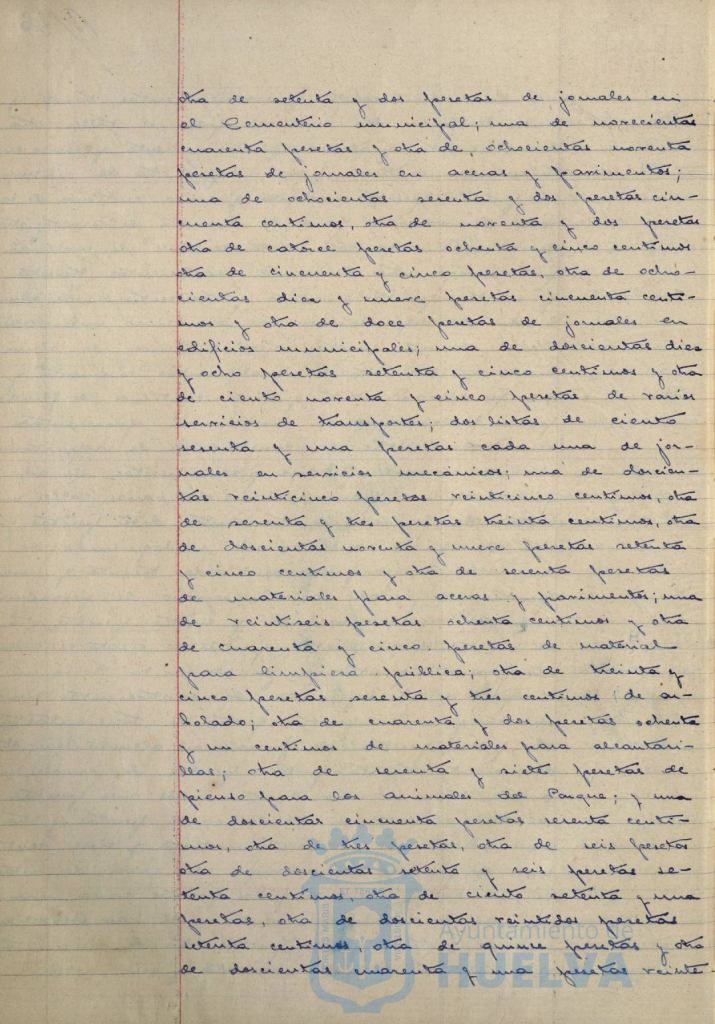 otra de setenta y dos pesetas de jornales en
el Cementerio municipal; una de novecientas
cuarenta pesetas y otra de, ochocientas noventa
pesetas de jornales en aceras y pavimentos;
una de ochocientas sesenta y dos pesetas cin-
cuenta centimos, otra de noventa y dos pesetas
otra de catorce pesetas ochenta y cinco centimos
otra de cincuenta y cinco pesetas, otra de ocho-
cientas diez y nueve pesetas cincuenta centi-
mos y otra de doce pesetas de jornales en
edificios municipales; una de doscientas diez
y ocho pesetas setenta y cinco centimos y otra
de ciento noventa y cinco pesetas de varios
servicios de transportes; dos listas de ciento
sesenta y una pesetas cada una de jor-
nales en servicios mecánicos; una de doscien-
tas veinticinco pesetas veinticinco centimos, otra
de sesenta y tres pesetas treinta centimos, otra
de doscientas noventa y nueve pesetas setenta
y cinco centimos y otra de sesenta pesetas
de materiales para aceras y pavimentos; una
de veintiseis pesetas ochenta centimos y otra
de cuarenta y cinco pesetas de material
para limpieza pública; otra de treinta y
cinco pesetas sesenta y tres centimos de ar-
bolado; otra de cuarenta y dos pesetas ochenta
y un centimos de materiales para alcantari-
llas; otra de sesenta y siete pesetas de
pienso para los animales del Parque; y una
de doscientas cincuenta pesetas sesenta centi-
mos, otra de tres pesetas, otra de seis pesetas
otra de doscientas setenta y seis pesetas se-
tenta centimos, otra de ciento setenta y una
pesetas, otra de doscientas veintidos pesetas
setenta centimos, otra de quince pesetas y otra
de doscientas cuarenta y una pesetas veinte-
Ayuntamiento de
HUELVA